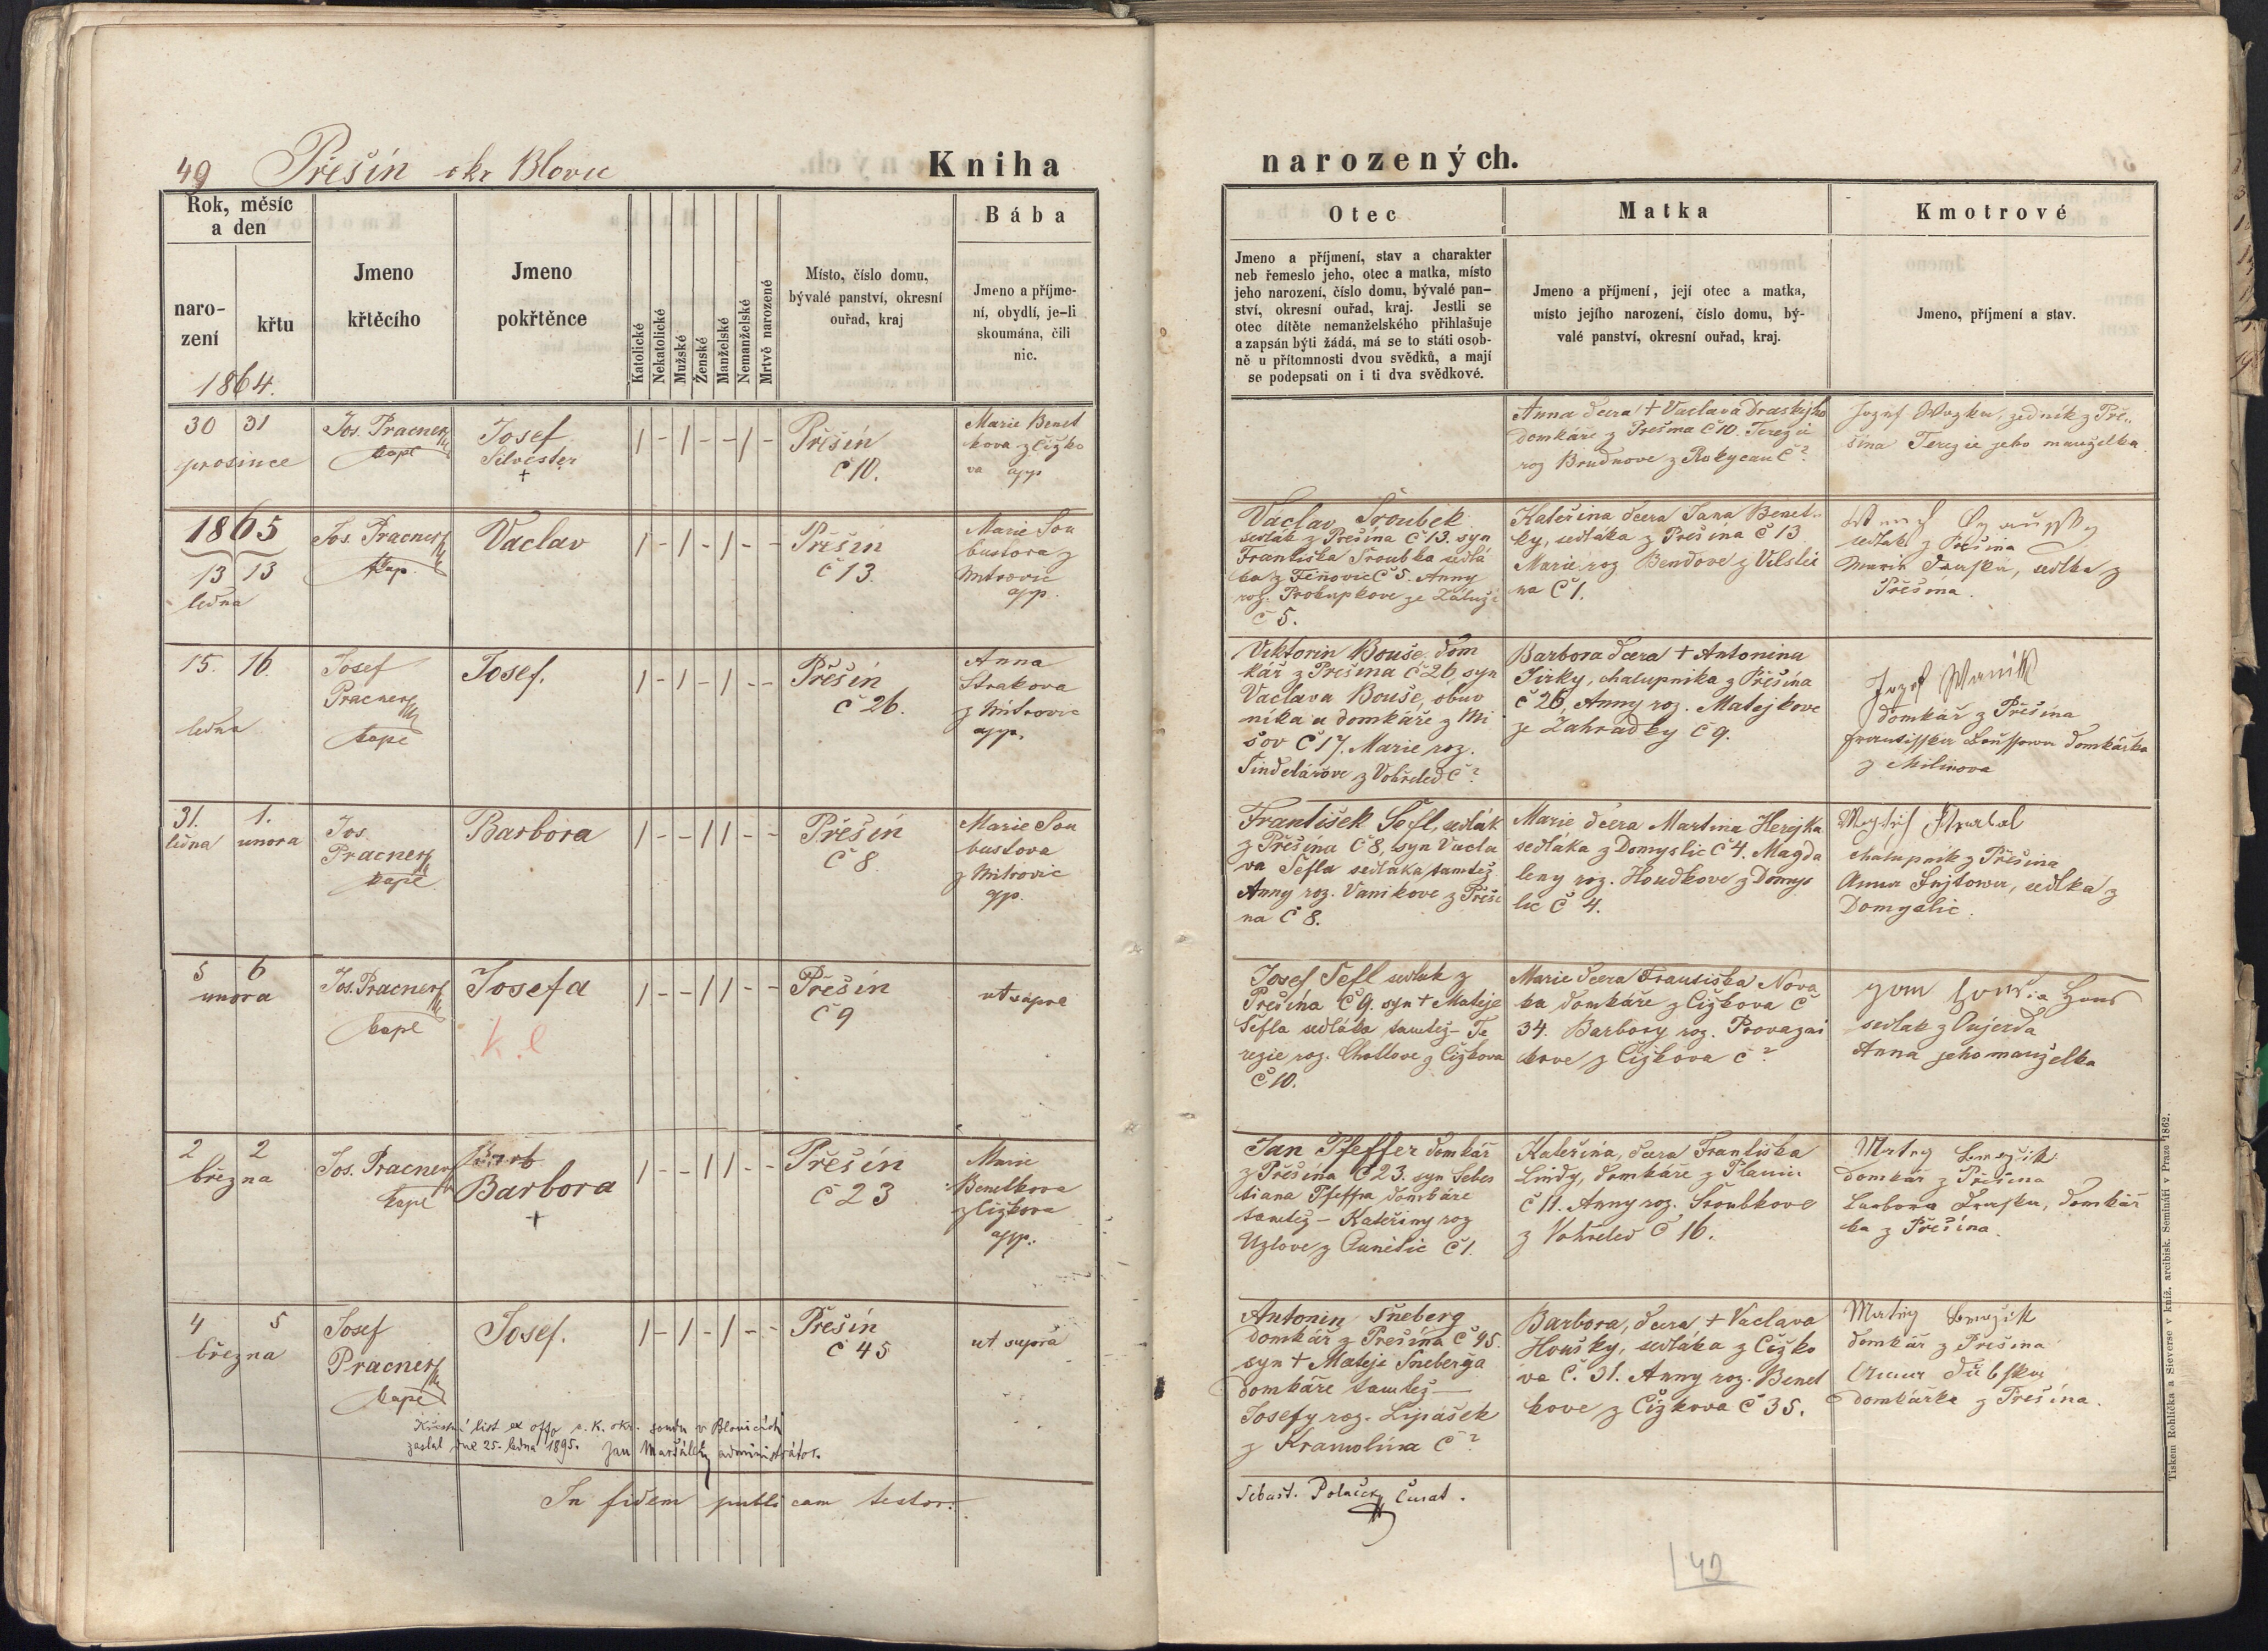 49 Přešín okr Blovic
Kniha
narozených.
Rok, měsíc
a den
naro-
zení
křtu
1864.
Jmeno
křtěcího
Jmeno
pokřtěnce
Katolické
Nekatolické
Mužské
Ženské
Manželské
Nemanželské
Mrtvě narozené
Místo, číslo domu,
bývalé panství, okresní
ouřad, kraj
Bába
Jmeno a příjme-
ní, obydlí, je-li
skoumána, čili
nic.
Otec
Jmeno a příjmení, stav a charakter
neb řemeslo jeho, otec a matka, místo
jeho narození, číslo domu, bývalé pan-
ství, okresní ouřad, kraj. Jestli se
otec dítěte nemanželského přihlašuje
a zapsán býti žádá, má se to státi osob-
ně u přítomnosti dvou svědků, a mají
se podepsati on i ti dva svědkové.
Matka
Jmeno a příjmení, její otec a matka,
místo jejího narození, číslo domu, bý-
valé panství, okresní ouřad, kraj.
Kmotrové
Jmeno, příjmení a stav.
30 31
prosince
Jos. Pracner
kapl
Josef
Silvester
+
1 - 1 - - 1 -
Přešín
č 10.
Marie Benet
kova z Čížko
va app
Anna dcera + Vaclava Draskýho
domkáře z Přešina č 10. Terezie
roz Brudnove z Rokycan č ?
Jozef Wozka, zedník z Pře-
šína Terezie jeho manželka
1865
13 13
ledna
Jos. Pracner
kap.
Vaclav
1 - 1 - 1 - -
Přešín
č 13.
Marie Sou
bustova z
Mitrovic
app.
Václav Šroubek
sedlák z Přešina č 13. syn
Františka Šroubka sedlá
ka z Těňovic č 5. Anny
roz. Prokupkove ze Záluží
č 5.
Kateřina dcera Jana Benet-
ky, sedláka z Přešína č 13
Marie roz Bendove z Vlslic
na č 1.
sedlák z Přešina
Marie Draska, sedlka z
Přešina.
15. 16.
ledna
Josef
Pracner
kapl
Josef.
1 - 1 - 1 - -
Přešín
č 26.
Anna
Strakova
z Mitrovic
app.
Viktorin Bouše, dom
kář z Přešina č 26, syn
Vaclava Bouše, obuv
níka a domkáře z Mi
šov č 17. Marie roz.
Šindelářove z Vohřeled č ?
Barbora dcera + Antonina
Jirky, chalupníka z Přešína
č 26, Anny roz. Matejkove
ze Zahradky č 9.
Jozef Wanik
domkář z Přešína
domkářka
z Milinova
31. 1.
ledna unora
Jos.
Pracner
kapl
Barbora
1 - - 1 1 - -
Přešín
č 8
Marie Sou
bustova
z Mitrovic
app.
František Šefl, sedlák
z Přešina č 8, syn Vacla
va Šefla sedláka tamtéž
Anny roz. Vanikove z Přeši
na č 8.
Marie dcera Martina Herejka
sedláka z Domyslic č 4. Magda
leny roz. Houdkove z Domys
lic č 4.
chalupník z Přešina
Anna Fujtowa, sedlka z
Domyslic.
5 6
unora
Jos. Pracner
kapl
Josefa
k. l
1 - - 1 1 - -
Přešín
č 9
ut supra
Josef Šefl sedlak z
Přešína č 9. syn + Mateje
Šefla sedláka tamtéž - Te
rezie roz. Chottove z Čížkova
č 10.
Marie dcera Františka Nova
ka domkáře z Čížkova č
34. Barbory roz. Provazni
kove z Čížkova č ?
sedlak z Ptujerda
Anna jeho manželka
2 2
března
Jos. Pracner
kapl
Barb
Barbora
+
1 - - 1 1 - -
Přešín
č 23
Marie
Benetkova
z Čížkova
app.
Jan Pfeffer domkář
z Přešina č 23. syn Sebes
tiana Pfeffra domkáře
tamtéž - Kateřiny roz
Uzlove z Čunětic č 1.
Kateřina, dcera Františka
Lindy, domkáře z Planin
č 11. Anny roz. Šroubkove
z Vohřeled č 16.
domkář z Přešina
Barbora Draska, domkář
ka z Přešína.
4 5
března
Josef
Pracner
kapl
Josef.
1 - 1 - 1 - -
Přešín
č 45
ut supra
Antonin Šneberg
domkář z Přešína č 45.
syn + Mateje Šneberga
domkáře tamtéž -
Josefy roz. Lipášek
z Kramolína č ?
Barbora, dcera + Vaclava
Houšky, sedláka z Čížko
va č. 31. Anny roz. Benet
kove z Čížkova č 35.
domkář z Přešína
Anna
domkářka z Přešína.
Křestní list ex offo c. k. okr. soudu v Blovicích
zaslal dne 25. ledna 1895. Jan Maršálek, administrátor.
In fidem publicam testor.
Sebast. Polaček Curat.
49
Tiskem Rohlíčka a Sieverse v kníž. arcibisk. Semináři v Praze 1862.